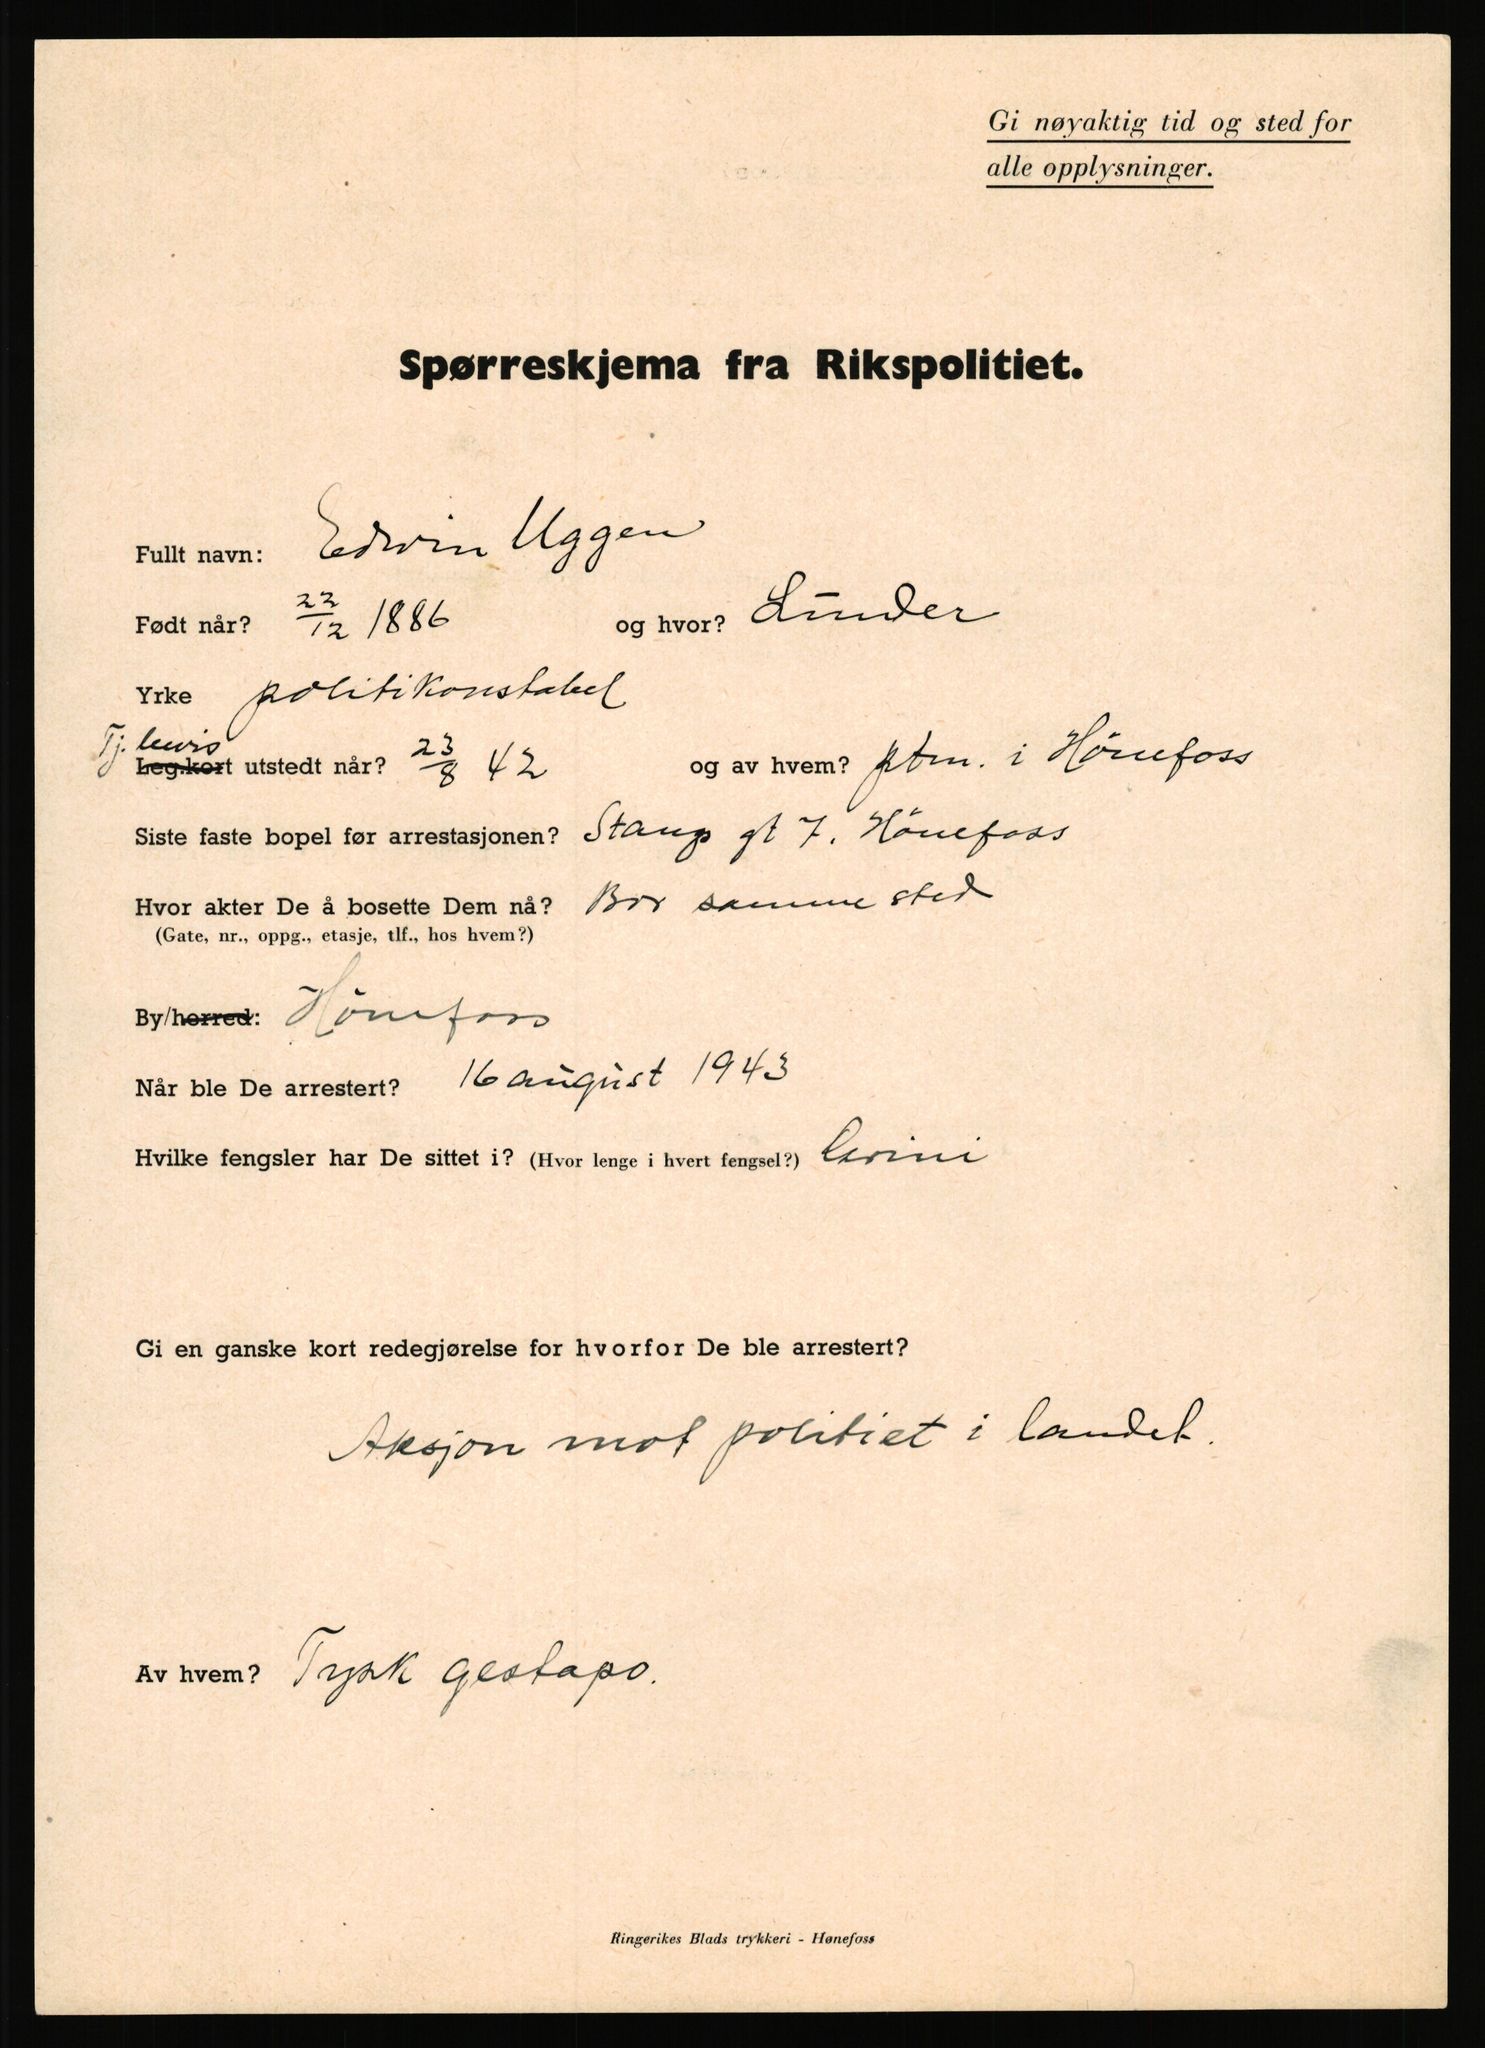 Gi nøyaktig tid og sted for
alle opplysninger.
Spørreskjema fra Rikspolitiet.
Fullt navn: Edwin Uggen
Født når? 22/12 1886 og hvor? Lunder
Yrke politikonstabel
Tj. bevis
Leg.kort utstedt når? 23/8 42 og av hvem? ptm. i Hönefoss
Siste faste bopel før arrestasjonen? Stangs gt 7. Hönefoss
Hvor akter De å bosette Dem nå? Bor samme sted
(Gate, nr., oppg., etasje, tlf., hos hvem?)
By/herred: Hönefoss
Når ble De arrestert? 16 august 1943
Hvilke fengsler har De sittet i? (Hvor lenge i hvert fengsel?) Grini
Gi en ganske kort redegjørelse for hvorfor De ble arrestert?
Aksjon mot politiet i landet.
Av hvem? Tysk gestapo.
Ringerikes Blads trykkeri - Hønefoss